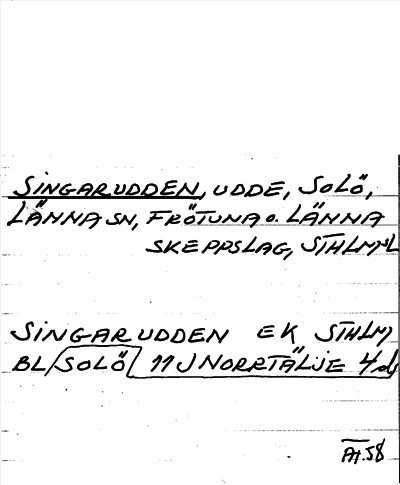 SINGARUDDEN, UDDE, SOLÖ,
LÄNNA SN, FRÖTUNA o. LÄNNA
SKEPPSLAG, STHLMS L
SINGARUDDEN EK STHLM
BL/SOLÖ/ 11 J NORRTÄLJE 4 d
At. 58